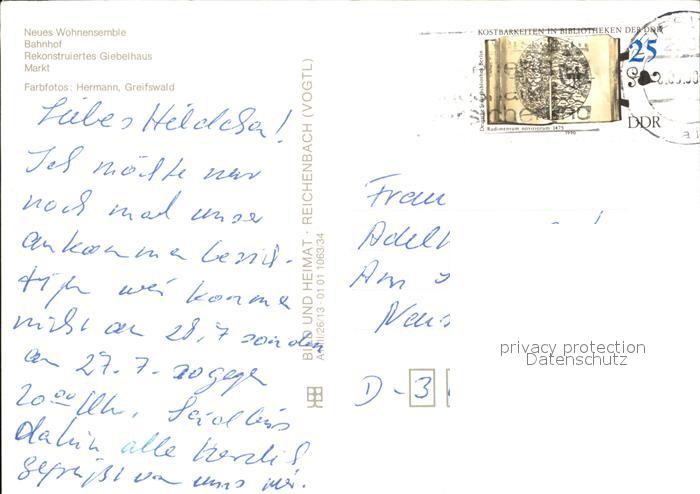 Neues Wohnensemble
Bahnhof
Rekonstruiertes Giebelhaus
Markt
Farbfotos: Hermann, Greifswald
Liebes Hildchen!
Ich möchte nur
noch mal unser
ankommen bestä-
tigen wir kommen
nicht am 28.7 sondern
am 27.7. so gegen
20.00 Uhr. Seid bis
dahin alle herzlich
gegrüßt von uns
BILD UND HEIMAT · REICHENBACH (VOGTL)
A 1/III/26/13 · 01 01 1063/34
KOSTBARKEITEN IN BIBLIOTHEKEN DER DDR
25
Deutsche Staatsbibliothek Berlin
Rudimentum novitiorum 1475
1990
DDR
Frau
Adelh
Am
Neus
D-3
privacy protection
Datenschutz